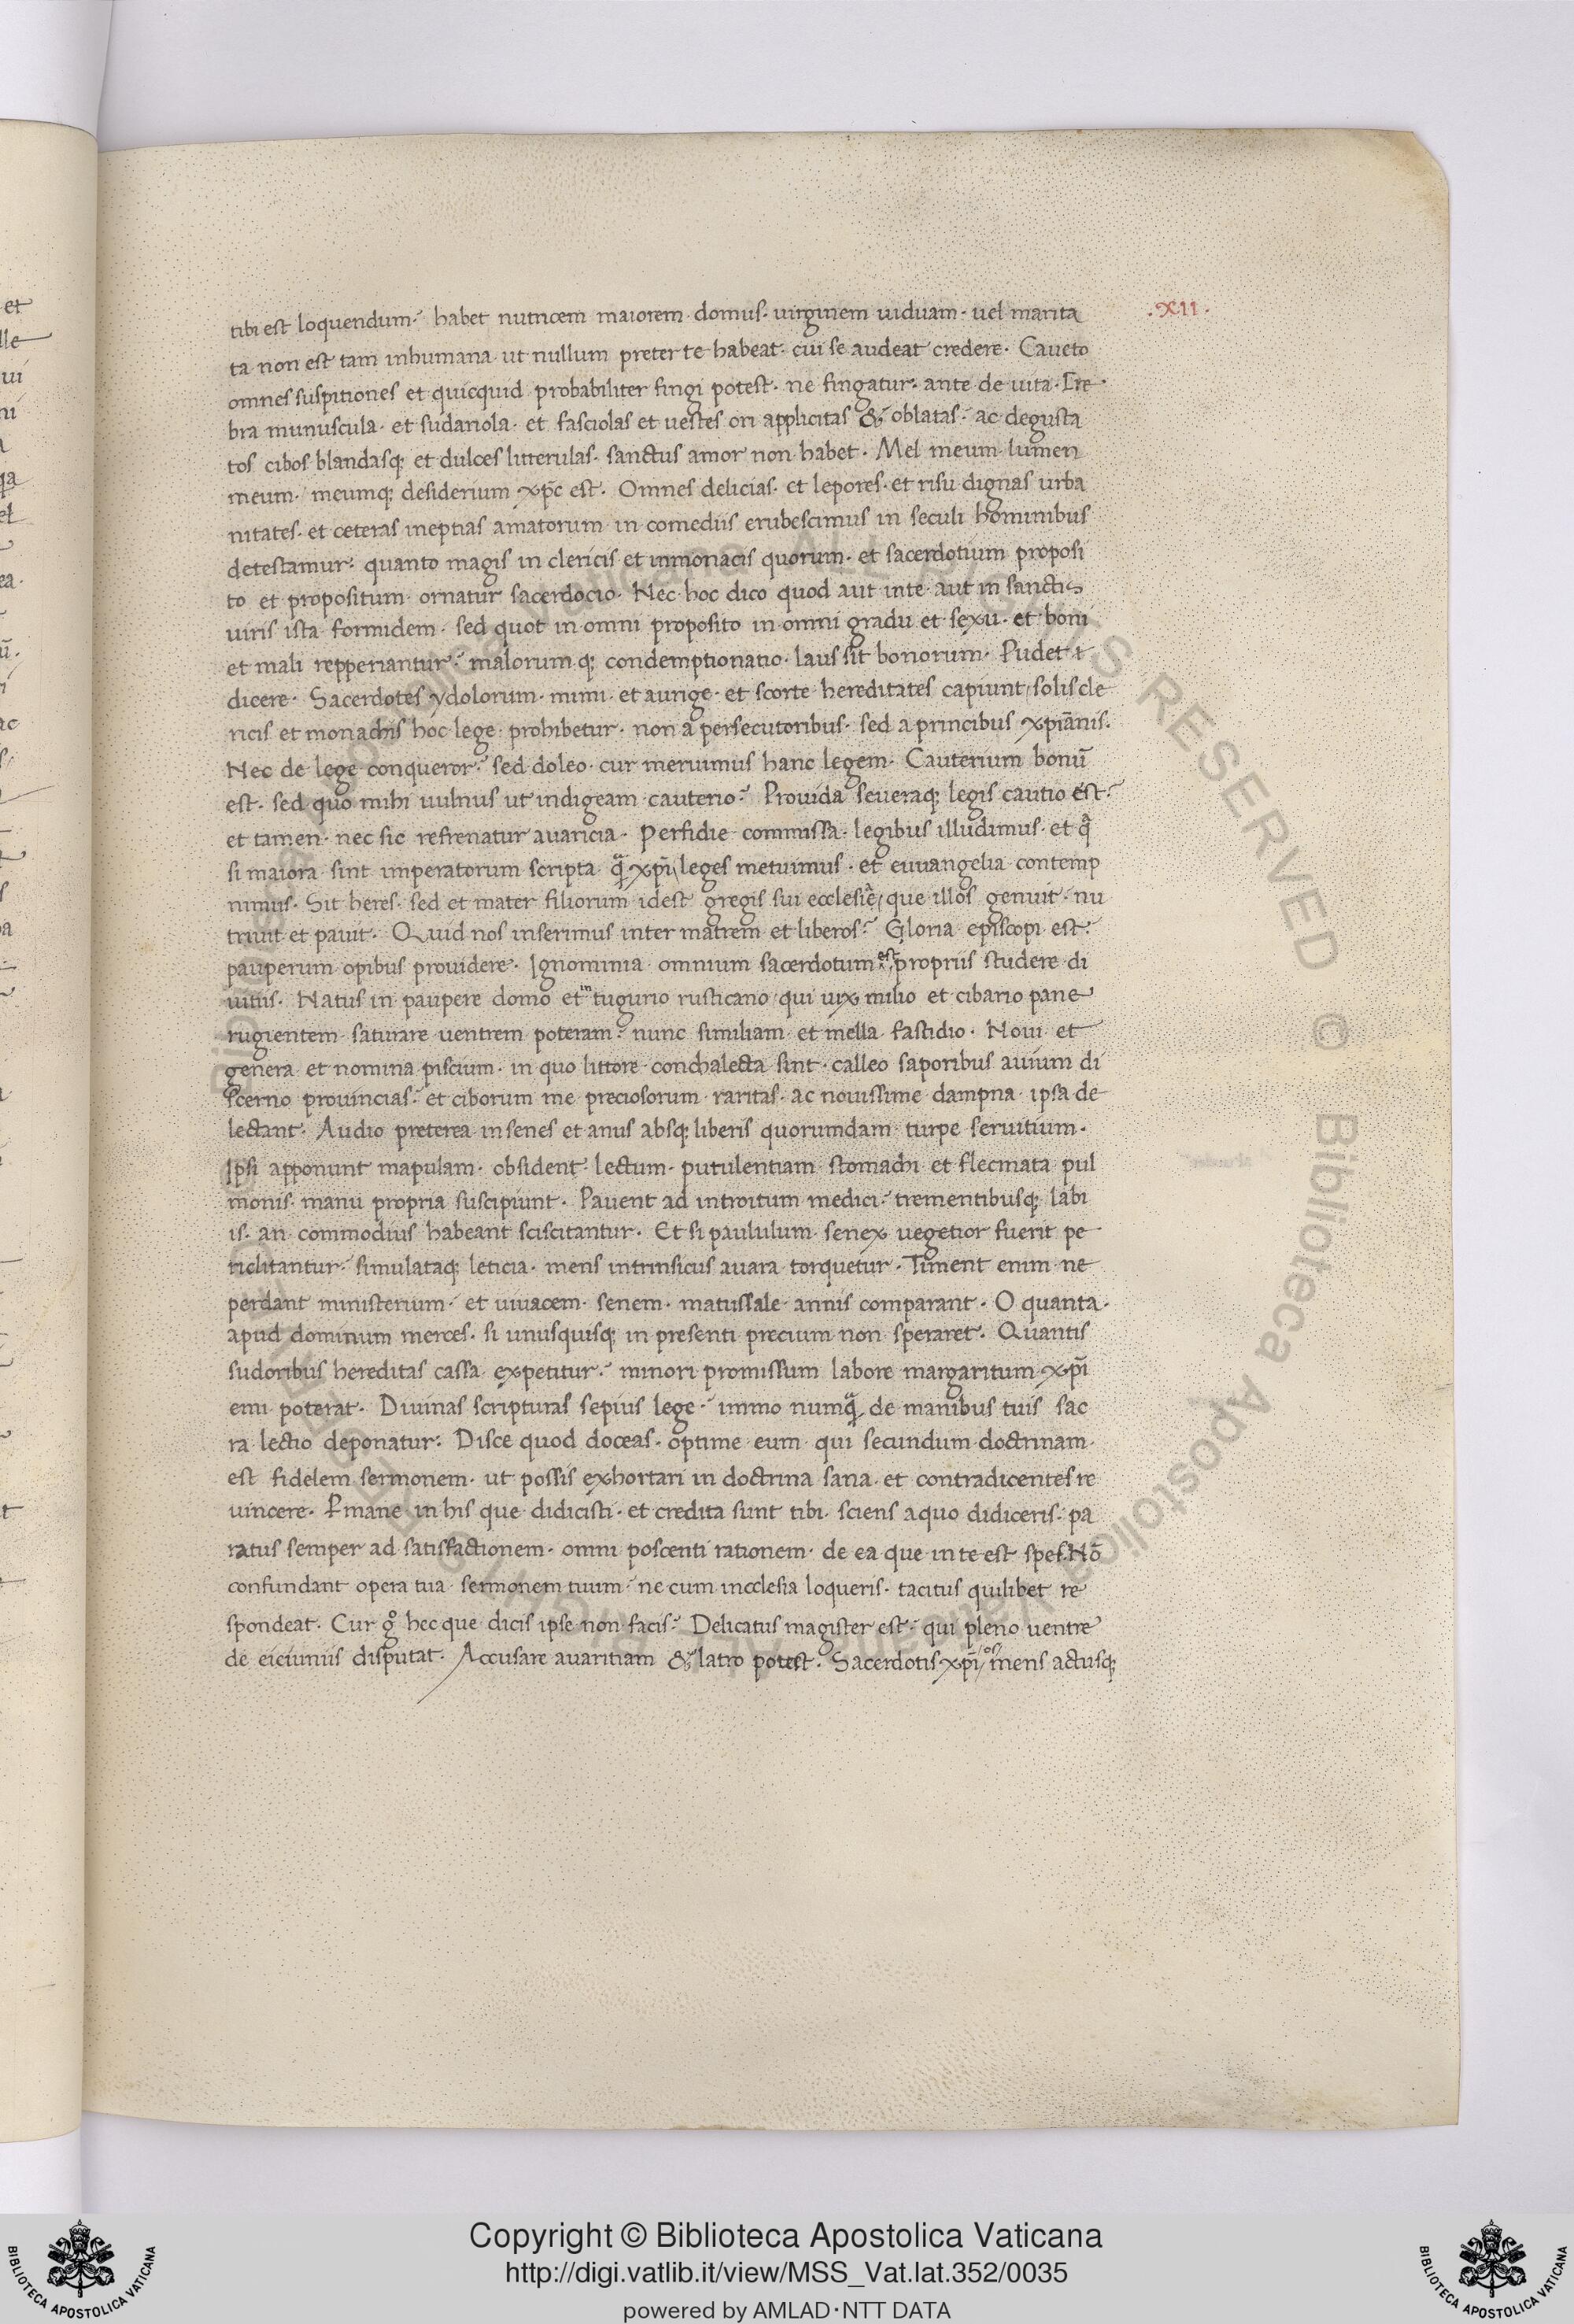 .XII.
tibi est loquendum· habet nutricem maiorem domus· uirginem uiduam· uel marita
ta non est tam inhumana ut nullum preter te habeat· cui se audeat credere· Caueto
omnes suspitiones et quicquid probabiliter fingi potest· ne fingatur· ante de uita· Cre
bra munuscula· et sudariola· et fasciolas et uestes ori applicitas & oblatas· ac degusta
tos cibos blandasq; et dulces litterulas· sanctus amor non habet· Mel meum lumen
meum· meumq; desiderium xp̄c est· Omnes delicias· et lepores· et risu dignas urba
nitates· et ceteras ineptias amatorum in comediis erubescimus in seculi hominibus
detestamur· quanto magis in clericis et inmonacis quorum· et sacerdotium proposi
to et propositum ornatur sacerdocio· Nec hoc dico quod aut inte aut in sanctis
uiris ista formidem· sed quot in omni proposito in omni gradu et sexu· et boni
et mali repperiantur· malorum q; condemptionatio· laus sit bonorum· Pudet
dicere· Sacerdotes ydolorum· mimi et aurige· et scorte hereditates capiunt/ solis cle
ricis et monachis hoc lege prohibetur· non a persecutoribus· sed a princibus xpiānis·
Nec de lege conqueror· sed doleo· cur meruimus hanc legem· Cauterium bonū
est· sed quo mihi uulnus ut indigeam cauterio· Prouida seueraq; legis cautio est·
et tamen· nec sic refrenatur auaricia· Perfidie commissa· legibus illudimus· et qͣ
si maiora sint imperatorum scripta qͣ xpī leges metuimus· et euuangelia contemp
nimus· Sit heres· sed et mater filiorum idest gregis sui ecclesie/ que illos genuit· nu
triuit et pauit· Quid nos inserimus inter matrem et liberos· Gloria episcopi est·
pauperum opibus prouidere· Ignominia omnium sacerdotum est propriis studere di
uitiis· Natus in paupere domo et in tugurio rusticano qui uix milio et cibario pane
rugientem saturare uentrem poteram· nunc similiam et mella fastidio· Noui et
genera et nomina piscium· in quo littore conchalecta sint· calleo saporibus auium di
scerno prouincias· et ciborum me preciosorum raritas· ac nouissime dampna ipsa de
lectant· Audio preterea in senes et anus absq; liberis quorumdam turpe seruitium·
Ipsi apponunt mapulam· obsident lectum· putulentiam stomachi et flecmata pul
monis· manu propria suscipiunt· Pauent ad introitum medici· trementibusq; labi
is· an commodius habeant sciscitantur· Et si paululum senex uegetior fuerit pe
riclitantur· simulataq; leticia· mens intrinsicus auara torquetur· Timent enim ne
perdant ministerium· et uiuacem· senem· matussale annis comparant· O quanta·
apud dominum merces· si unusquisq; in presenti precium non speraret· Quantis
sudoribus hereditas cassa expetitur· minori promissum labore margaritum xpī
emi poterat· Diuinas scripturas sepius lege· immo numqͣ de manibus tuis sac
ra lectio deponatur· Disce quod doceas· optime eum qui secundum doctrinam·
est fidelem sermonem· ut possis exhortari in doctrina sana· et contradicentes re
uincere· Pmane in his que didicisti· et credita sunt tibi· sciens aquo didiceris· pa
ratus semper ad satisfactionem· omni poscenti rationem· de ea que in te est spes· Nō
confundant opera tua sermonem tuum· ne cum incclesia loqueris· tacitus quilibet re
spondeat· Cur gͦ hec que dicis ipse non facis· Delicatus magister est· qui pleno uentre
de eiciuniis disputat· Accusare auaritiam & latro potest· Sacerdotis xpī os/ mens actusq;
et
Copyright © Biblioteca Apostolica Vaticana
http://digi.vatlib.it/view/MSS_Vat.lat.352/0035
powered by AMLAD·NTT DATA
BIBLIOTECA APOSTOLICA VATICANA
BIBLIOTECA APOSTOLICA VATICANA